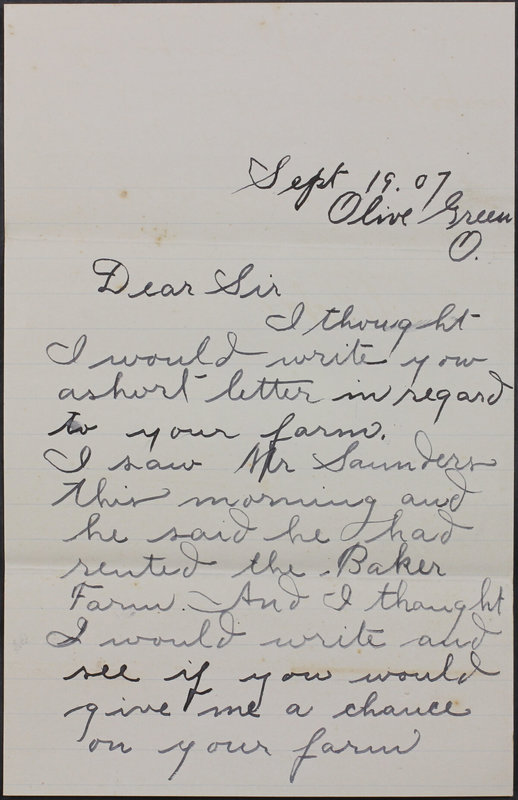 Sept 19. 07
Olive Green
O.
Dear Sir
I thought
I would write you
a short letter in regard
to your farm.
I saw Mr Saunders
this morning and
he said he had
rented the Baker
Farm. And I thought
I would write and
see if you would
give me a chance
on your farm